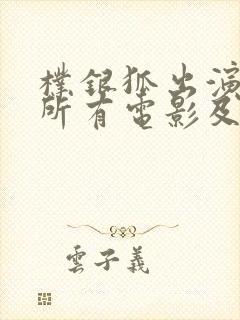 樸銀狐出演
所有電影及
雲子義